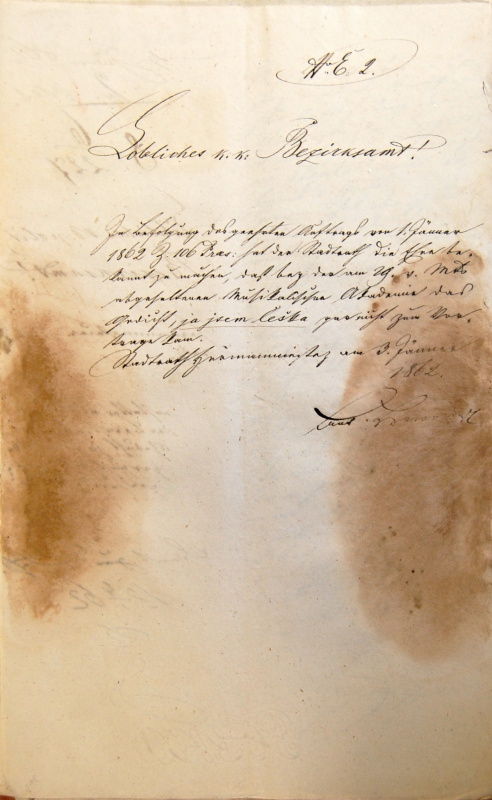 No E. 2.
Löbliches k. k: Bezirksamt!
In Befolgung des geehrten Auftrags von 1. Jänner
1862 Z. 106 Präs: hat der Stadtrath die Ehre be-
kannt zu machen, daß bey der am 29. v. Mts
abgehaltenen Musikalischen Akademie das
Gedicht, ja jsem Češka gar nicht zum Vor-
trage kam.
Stadtrath Heřmanměstez am 3. Jänner
1862.